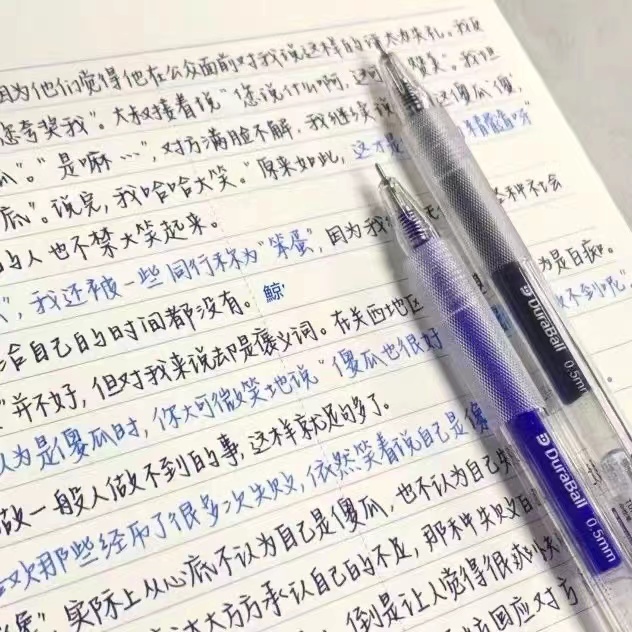 因为他们觉得他在公众面前对我说这样的话太失礼。我
您夸奖我"。大叔接着说"您说什么啊,这
瓜"。"是嘛…",对方满脸不解,我继续说 这傻瓜
底"。说完,我哈哈大笑。"原来如此,这才是 精髓呀"
的人也不禁大笑起来。
",我还被一些同行称为"笨蛋",因为我 各种不会
合自己的时间都没有。 鲸 为是白痴。
"并不好,但对我来说却是褒义词。在关西地区 做不到呢"
认为是傻瓜时,你大可微笑地说"傻瓜也很好 。
做一般人做不到的事,这样就足够了。
欢那些经历了很多次失败,依然笑着说自己是傻
实际上从心底不认为自己是傻瓜,也不认为自己
大大方方承认自己的不足,那种失败
倒是让人觉得很
回应对方
DuraBall 0.5mm
DuraBall 0.5mm